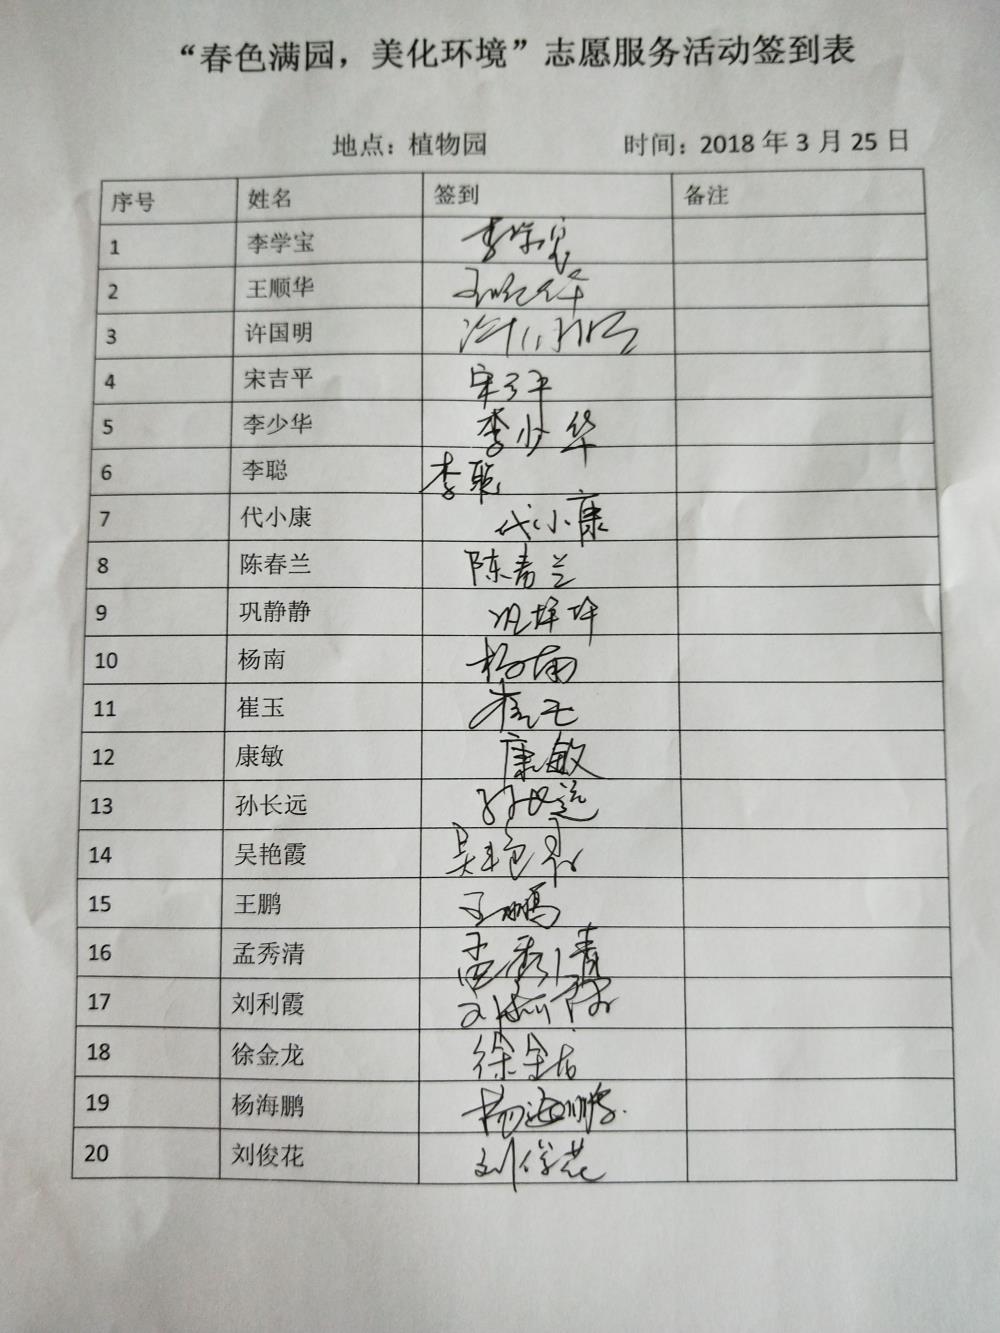 “春色满园，美化环境”志愿服务活动签到表
地点：植物园 时间：2018 年 3 月 25 日
序号 姓名 签到 备注
1 李学宝 李学宝
2 王顺华 王顺华
3 许国明 许国明
4 宋吉平 宋吉平
5 李少华 李少华
6 李聪 李聪
7 代小康 代小康
8 陈春兰 陈春兰
9 巩静静 巩静静
10 杨南 杨南
11 崔玉 崔玉
12 康敏 康敏
13 孙长远 孙长远
14 吴艳霞 吴艳霞
15 王鹏 王鹏
16 孟秀清 孟秀清
17 刘利霞 刘利霞
18 徐金龙 徐金龙
19 杨海鹏 杨海鹏
20 刘俊花 刘俊花